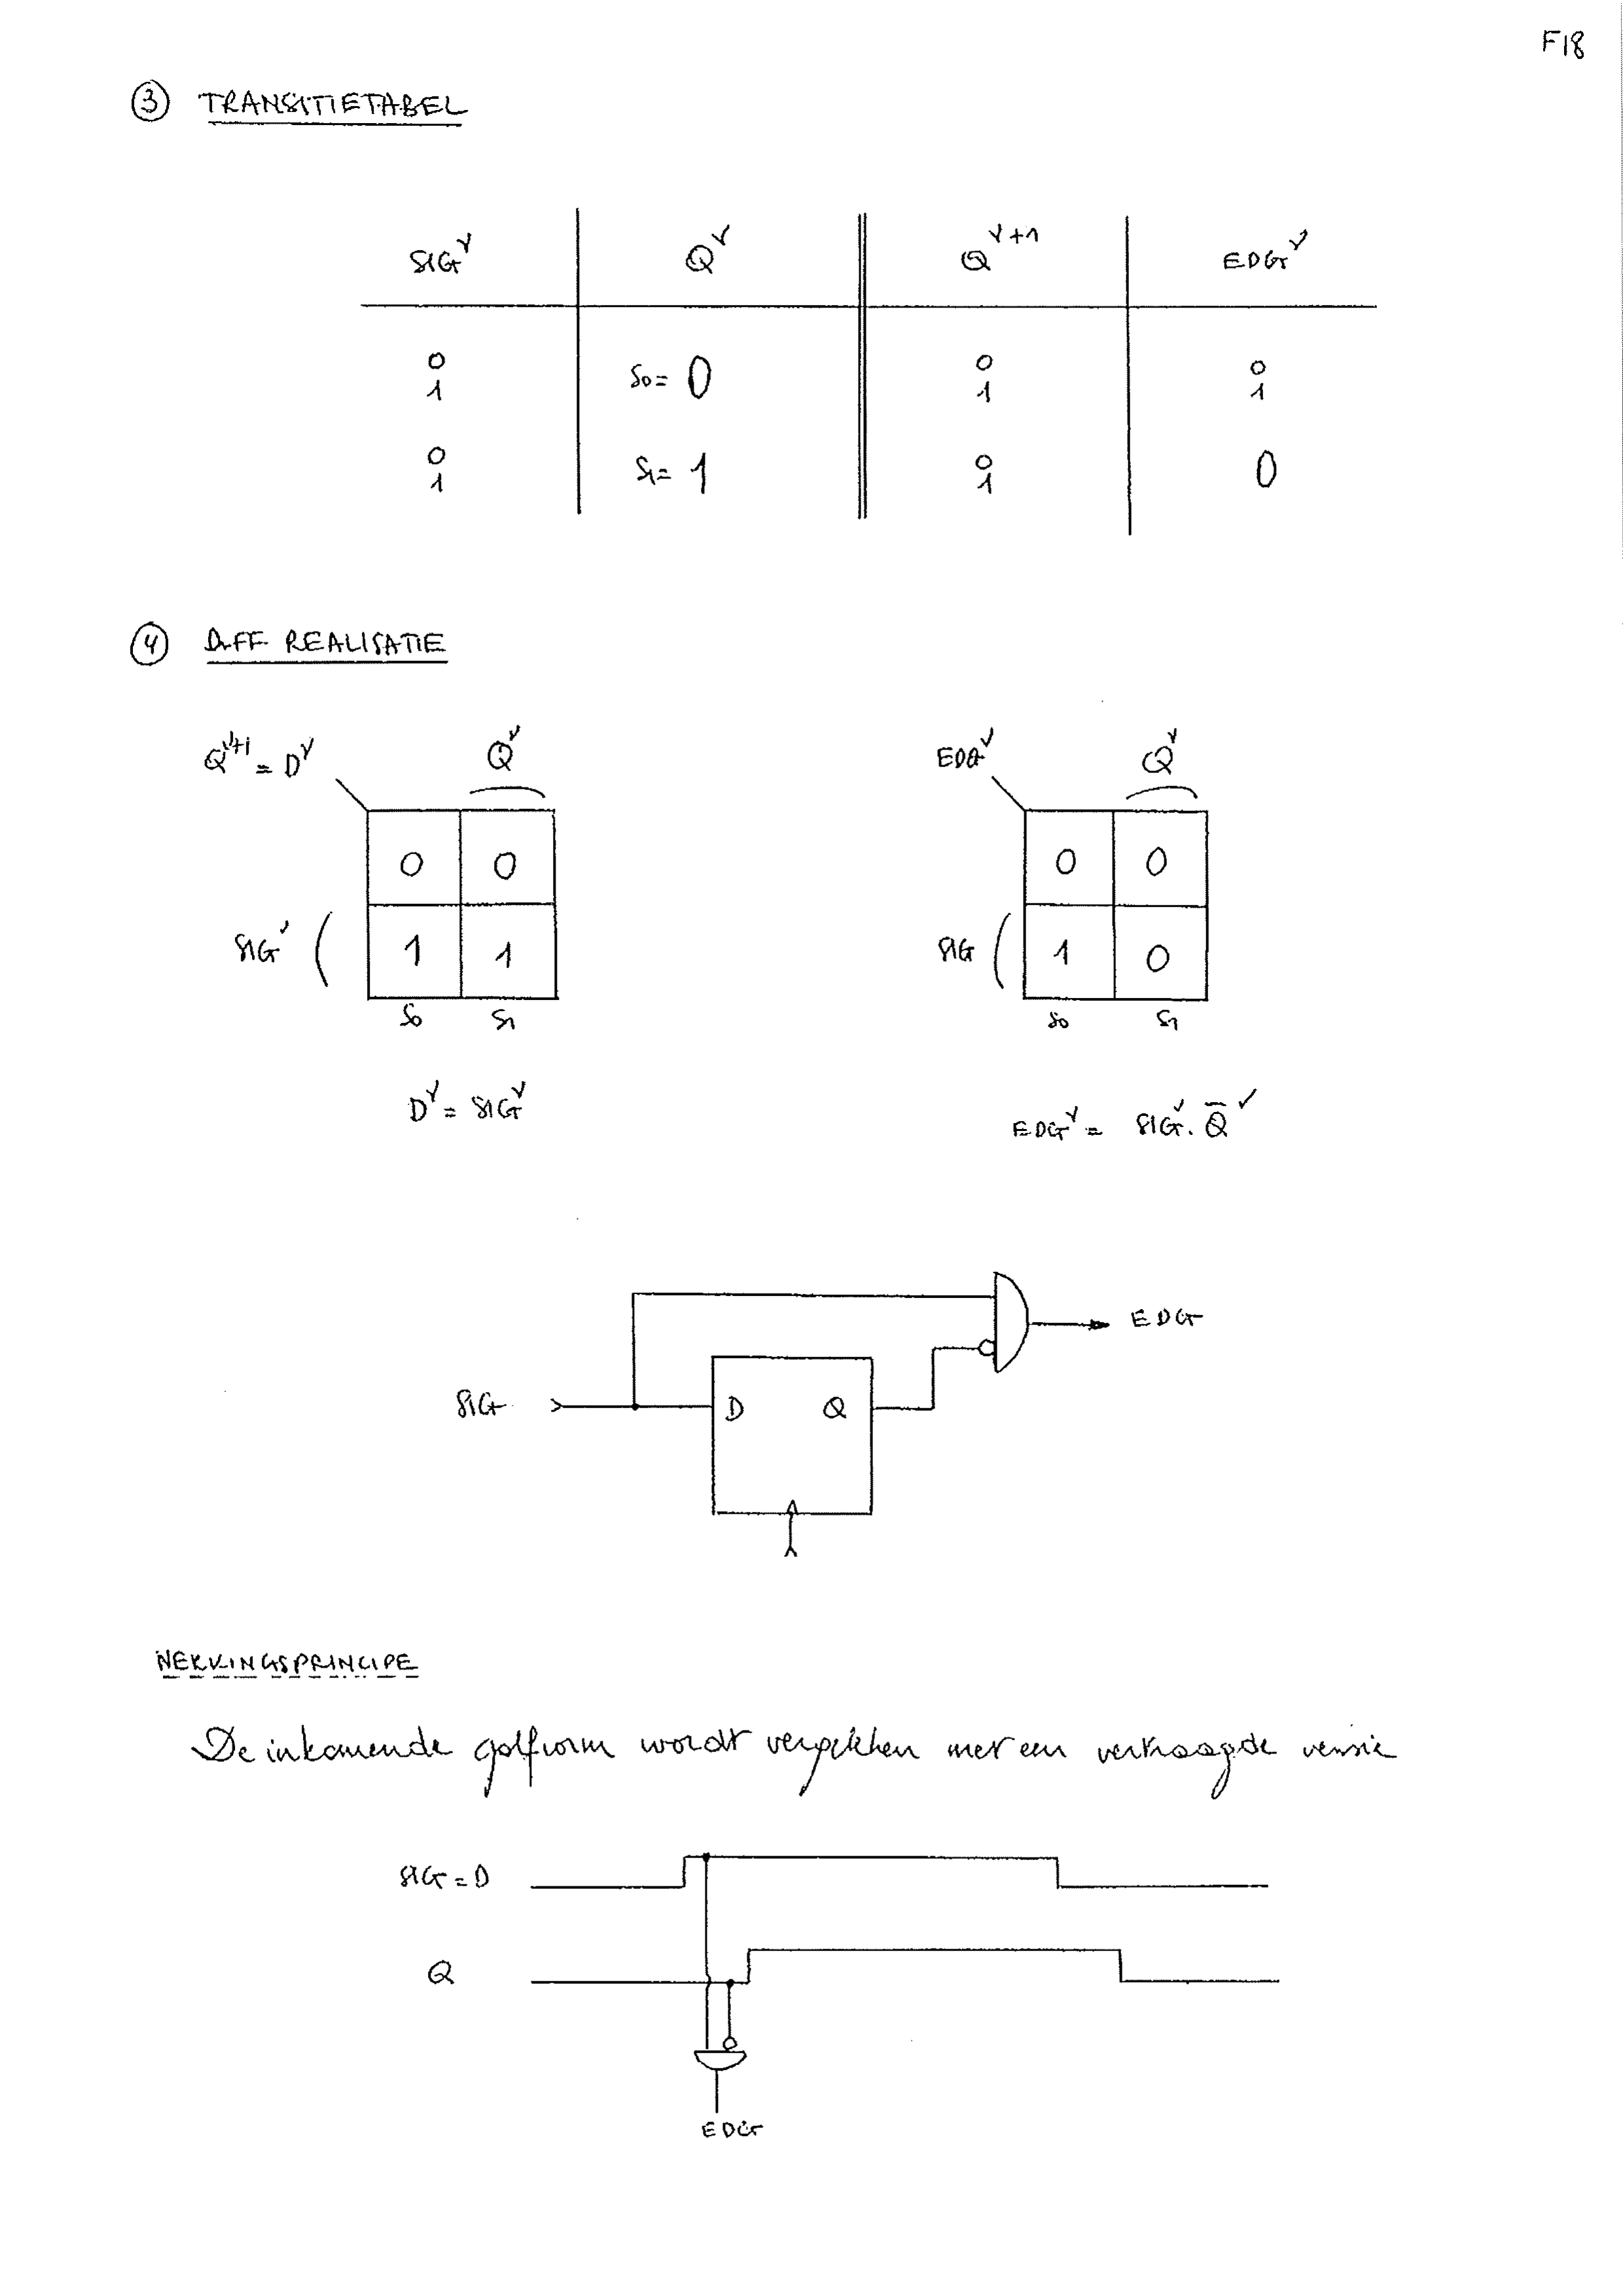 F18
③ TRANSITIETABEL
SIG^ν Q^ν Q^ν+1 EDG^ν
0 0 0
1 S0= 0 1 1
0 0
1 S1= 1 1 0
④ D-FF REALISATIE
Q^ν+1 = D^ν Q^ν
0 0
SIG^ν 1 1
S0 S1
D^ν = SIG^ν
EDG^ν Q^ν
0 0
SIG 1 0
S0 S1
EDG^ν = SIG^ν . Q̅^ν
EDG
SIG D Q
WERKINGSPRINCIPE
De inkomende golfvorm wordt vergeleken met een vertraagde versie
SIG = D
Q
EDG